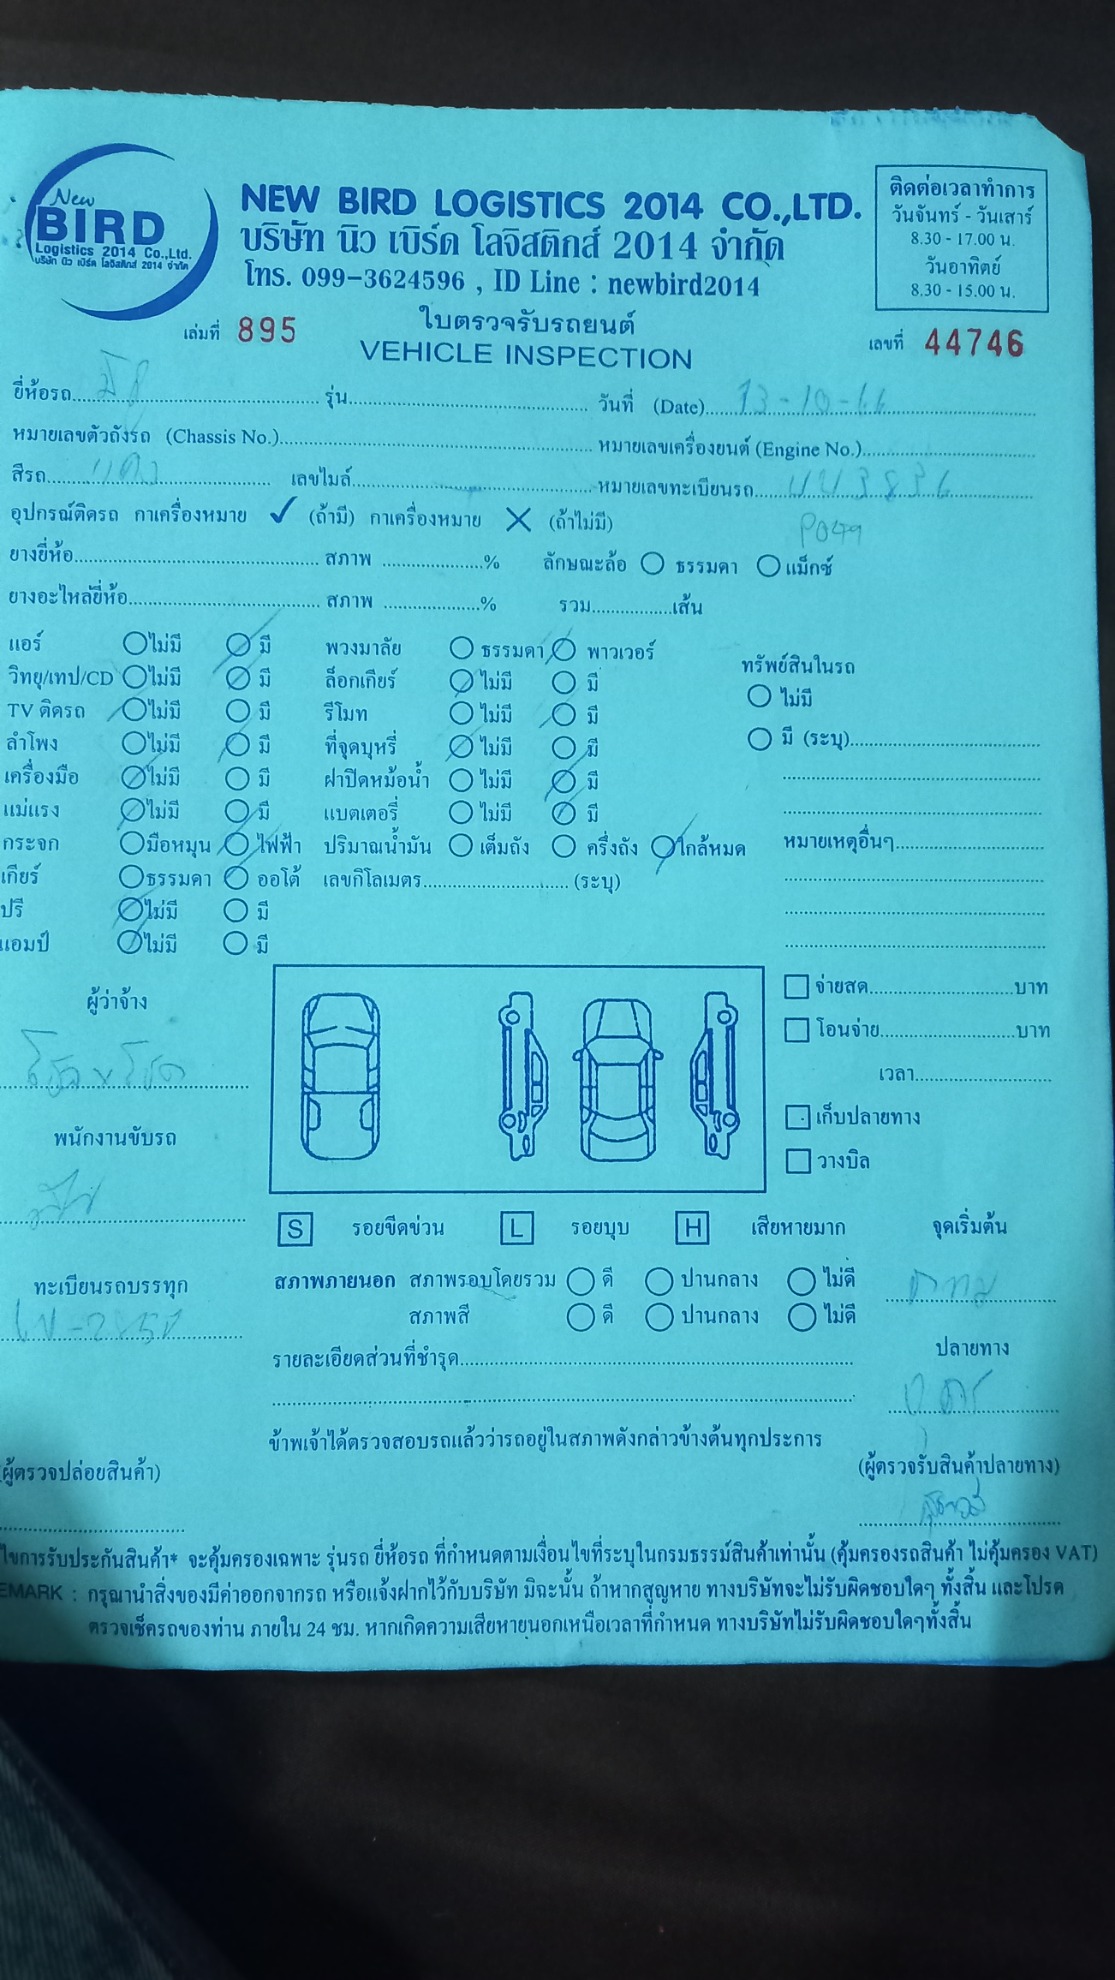 New
BIRD
Logistics 2014 Co.,Ltd.
บริษัท นิว เบิร์ด โลจิสติกส์ 2014 จำกัด
NEW BIRD LOGISTICS 2014 CO.,LTD.
บริษัท นิว เบิร์ด โลจิสติกส์ 2014 จำกัด
โทร. 099-3624596 , ID Line : newbird2014
ติดต่อเวลาทำการ
วันจันทร์ - วันเสาร์
8.30 - 17.00 น.
วันอาทิตย์
8.30 - 15.00 น.
เล่มที่ 895
ใบตรวจรับรถยนต์
VEHICLE INSPECTION
เลขที่ 44746
ยี่ห้อรถ รุ่น วันที่ (Date) 13-10-66
หมายเลขตัวถังรถ (Chassis No.) หมายเลขเครื่องยนต์ (Engine No.)
สีรถ แดง เลขไมล์ หมายเลขทะเบียนรถ 3836
อุปกรณ์ติดรถ กาเครื่องหมาย ✓ (ถ้ามี) กาเครื่องหมาย ✕ (ถ้าไม่มี)
ยางยี่ห้อ สภาพ % ลักษณะล้อ ธรรมดา แม็กซ์
ยางอะไหล่ยี่ห้อ สภาพ % รวม เส้น
แอร์ ไม่มี มี พวงมาลัย ธรรมดา พาวเวอร์
วิทยุ/เทป/CD ไม่มี มี ล็อกเกียร์ ไม่มี มี
TV ติดรถ ไม่มี มี รีโมท ไม่มี มี
ลำโพง ไม่มี มี ที่จุดบุหรี่ ไม่มี มี
เครื่องมือ ไม่มี มี ฝาปิดหม้อน้ำ ไม่มี มี
แม่แรง ไม่มี มี แบตเตอรี่ ไม่มี มี
กระจก มือหมุน ไฟฟ้า ปริมาณน้ำมัน เต็มถัง ครึ่งถัง ใกล้หมด
เกียร์ ธรรมดา ออโต้ เลขกิโลเมตร (ระบุ)
ปรี ไม่มี มี
แอมป์ ไม่มี มี
ทรัพย์สินในรถ
ไม่มี
มี (ระบุ)
หมายเหตุอื่นๆ
ผู้ว่าจ้าง
พนักงานขับรถ
ทะเบียนรถบรรทุก
จ่ายสด บาท
โอนจ่าย บาท
เวลา
เก็บปลายทาง
วางบิล
S รอยขีดข่วน L รอยบุบ H เสียหายมาก
จุดเริ่มต้น
สภาพภายนอก สภาพรอบโดยรวม ดี ปานกลาง ไม่ดี
สภาพสี ดี ปานกลาง ไม่ดี
ปลายทาง
รายละเอียดส่วนที่ชำรุด
ข้าพเจ้าได้ตรวจสอบรถแล้วว่ารถอยู่ในสภาพดังกล่าวข้างต้นทุกประการ
(ผู้ตรวจปล่อยสินค้า) (ผู้ตรวจรับสินค้าปลายทาง)
ไขการรับประกันสินค้า* จะคุ้มครองเฉพาะ รุ่นรถ ยี่ห้อรถ ที่กำหนดตามเงื่อนไขที่ระบุในกรมธรรม์สินค้าเท่านั้น (คุ้มครองรถสินค้า ไม่คุ้มครอง VAT)
EMARK : กรุณานำสิ่งของมีค่าออกจากรถ หรือแจ้งฝากไว้กับบริษัท มิฉะนั้น ถ้าหากสูญหาย ทางบริษัทจะไม่รับผิดชอบใดๆ ทั้งสิ้น และโปรด
ตรวจเช็ครถของท่าน ภายใน 24 ชม. หากเกิดความเสียหายนอกเหนือเวลาที่กำหนด ทางบริษัทไม่รับผิดชอบใดๆทั้งสิ้น